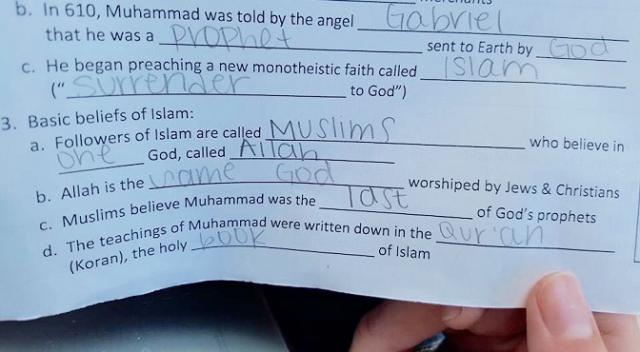 b. In 610, Muhammad was told by the angel Gabriel
that he was a prophet sent to Earth by God
c. He began preaching a new monotheistic faith called Islam
("surrender to God")
3. Basic beliefs of Islam:
a. Followers of Islam are called Muslims who believe in
one God, called Allah
b. Allah is the name God worshiped by Jews & Christians
c. Muslims believe Muhammad was the last of God's prophets
d. The teachings of Muhammad were written down in the Qur'an
(Koran), the holy book of Islam